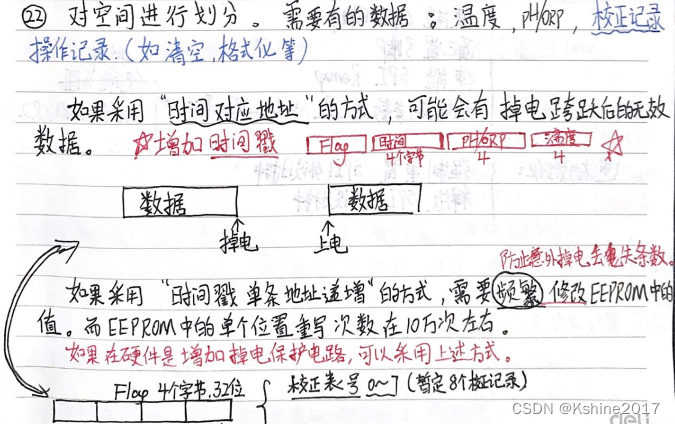 ㉒ 对空间进行划分。需要有的数据：温度，PH/ORP，校正记录
操作记录（如清空，格式化等）
如果采用“时间对应地址”的方式，可能会有掉电跨跃后的无效
数据。 ☆增加时间戳 Flag 时间 PH/ORP 温度 ☆
4个字节 4 4
数据 数据
掉电 上电
防止意外掉电丢失条数。
如果采用“时间戳 单条地址递增”的方式，需要频繁修改EEPROM中的
值。而EEPROM中的单个位置重写次数在10万次左右。
如果在硬件是增加掉电保护电路，可以采用上述方式。
Flag 4个字节.32位 校正表号 0~7（暂定8个校正记录）
CSDN @Kshine2017
deli